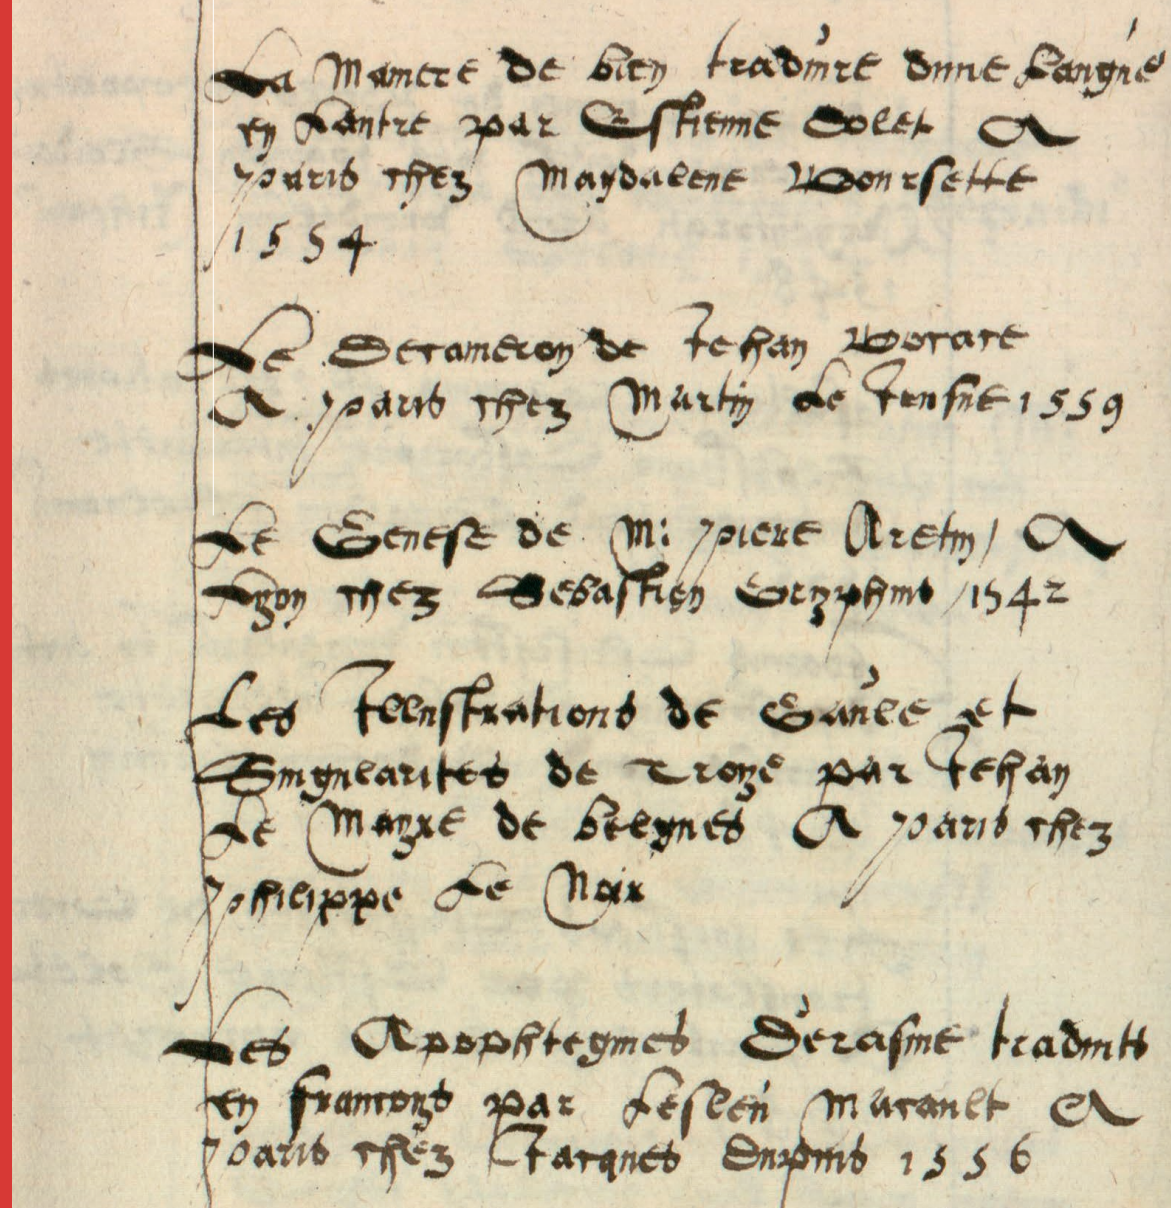 La Maniere de bien traduire dune Langue
en Lautre par Estienne Dolet A
paris chez Magdalene Boursette
1554
Le Decameron de Jehan Bocace
A paris chez Martin Le Jeusne 1559
Le Genese de M: piere Aretin / A
Lyon chez Sebastien Gryphius / 1542
Les Illustrations de Gaule et
Singularites de Troye par Jehan
Le Mayre de belges A paris chez
philippe Le Noir
Les Apophtegmes Derasme traduits
en francoys par Lesleu macault A
paris chez Jacques Dupuis 1556